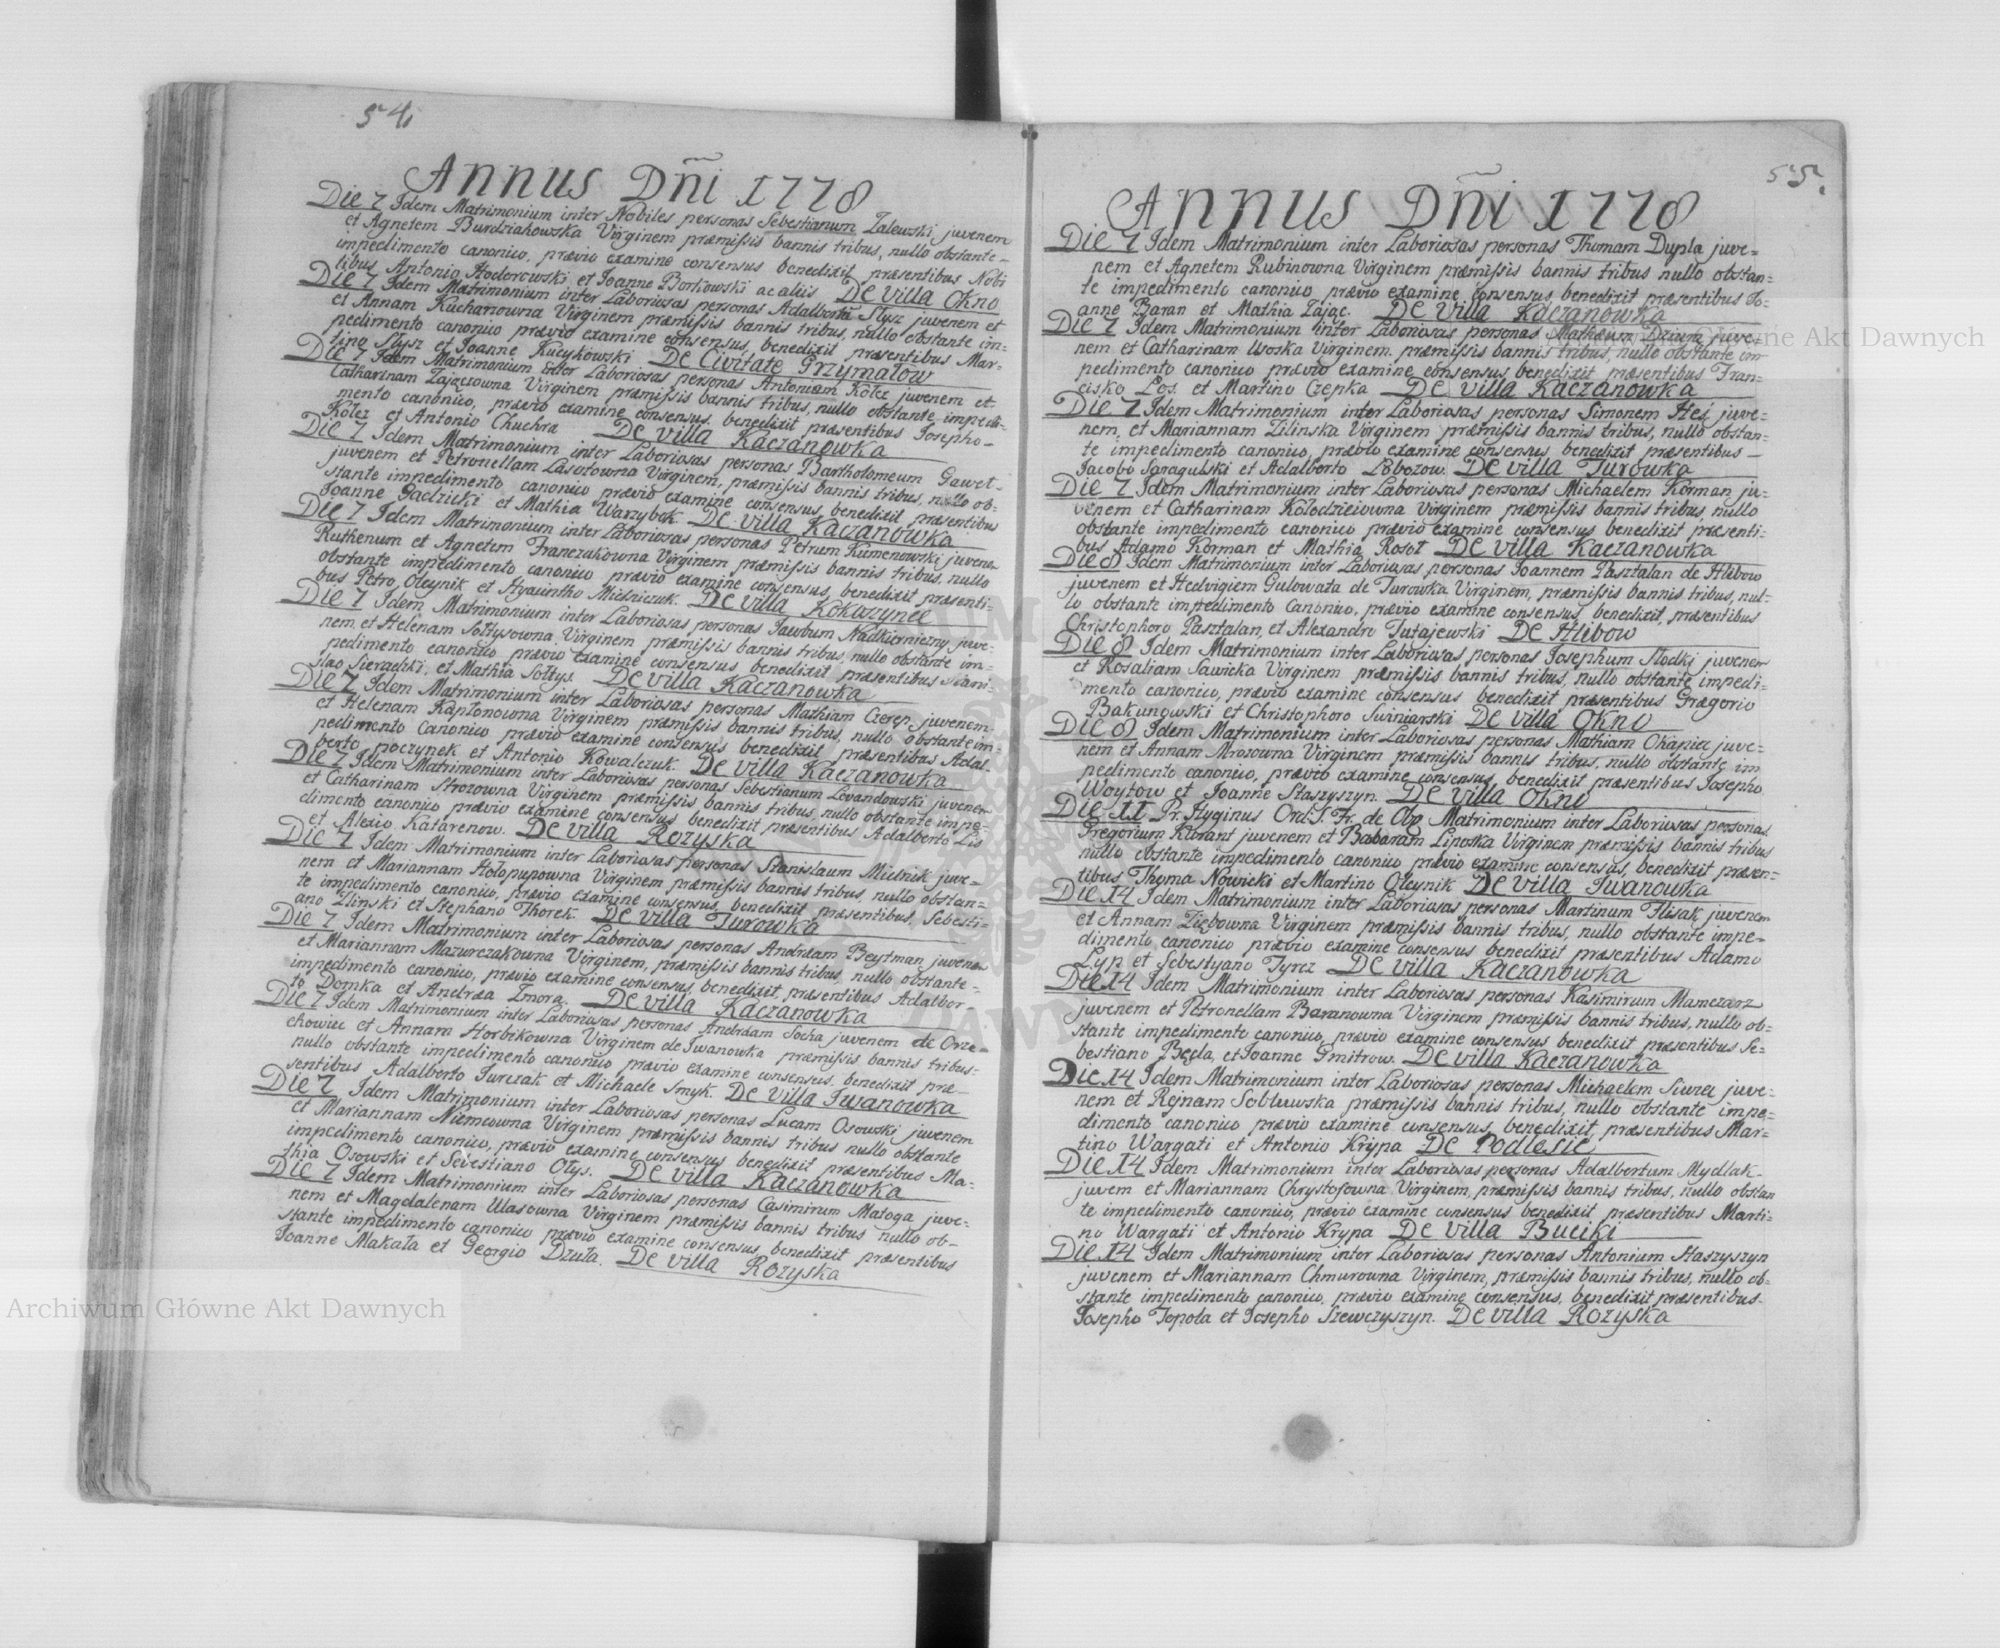 54.
Annus Dñi 1778
Die 7 Idem Matrimonium inter Nobiles personas Sebestianum Zalewski juvenem
et Agnetem Burdziakowska Virginem præmissis bannis tribus, nullo obstante-
impedimento canonico, prævio examine consensus benedixit præsentibus Nobi
libus Antonio Hodorowski et Joanne Borkowski ac aliis De Villa Okno
Die 7 Idem Matrimonium inter Laboriosas personas Adalbertū Słysz juvenem et
et Annam Kucharowna Virginem præmissis bannis tribus, nullo obstante im-
pedimento canonico prævio examine consensus, benedixit præsentibus Mar-
tino Słysz et Joanne Kucykowski De Civitate Grzymałow
Die 7 Idem Matrimonium inter Laboriosas personas Antonium Kołcz juvenem et
Catharinam Zajączowna Virginem præmissis bannis tribus, nullo obstante impedi-
mento canonico, prævio examine consensus, benedixit præsentibus Josepho-
Kołcz et Antonio Chuchra De Villa Kaczanowka
Die 7 Idem Matrimonium inter Laboriosas personas Bartholomeum Gaweł-
juvenem et Petronellam Lasotowna Virginem, præmissis bannis tribus, nullo ob-
stante impedimento canonico prævio examine consensus, benedixit præsentibus
Joanne Gadzicki et Mathia Warzybok. De Villa Kaczanowka
Die 7 Idem Matrimonium inter Laboriosas personas Petrum Kumenowski juvenem
Ruthenum et Agnetem Franczakowna Virginem præmissis bannis tribus, nullo
obstante impedimento canonico prævio examine consensus, benedixit præsenti-
bus Petro Oleynik et Hyacintho Miśniczuk. De Villa Kokoszynce
Die 7 Idem Matrimonium inter Laboriosas personas Jacobum Nadkierniczny juve-
nem, et Helenam Sołtysowna Virginem præmissis bannis tribus, nullo obstante im-
pedimento canonico prævio examine consensus benedixit præsentibus Stani-
slao Sieradzki, et Mathia Sołtys. De Villa Kaczanowka
Die 7 Idem Matrimonium inter Laboriosas personas Mathiam Czerep juvenem
et Helenam Kapłonowna Virginem præmissis bannis tribus, nullo obstante im-
pedimento Canonico prævio examine consensus benedixit præsentibus Adal-
berto poczynek et Antonio Kowalczuk. De Villa Kaczanowka
Die 7 Idem Matrimonium inter Laboriosas personas Sebestianum Levandowski juvenem
et Catharinam Strozowna Virginem præmissis bannis tribus, nullo obstante impe-
dimento canonico prævio examine consensus benedixit præsentibus Adalberto Lis
et Alexio Katarenow. De Villa Rozyska
Die 7 Idem Matrimonium inter Laboriosas personas Stanislaum Mielnik juve-
nem et Mariannam Hołopupowna Virginem præmissis bannis tribus, nullo obstan-
te impedimento canonico, prævio examine consensus, benedixit præsentibus, Sebesti-
ano Zlinski et Stephano Thorek. De Villa Turowka
Die 7 Idem Matrimonium inter Laboriosas personas Andræam Beytman juvenem
et Mariannam Mazurczakowna Virginem, præmissis bannis tribus, nullo obstante-
impedimento canonico, prævio examine consensus, benedixit, præsentibus Adalber
to Domka et Andræa Zmora. De Villa Kaczanowka
Die 7 Idem Matrimonium inter Laboriosas personas Andræam Socha juvenem de Orze-
chowiec et Annam Horbikowna Virginem de Iwanowka præmissis bannis tribus-
nullo obstante impedimento canonico prævio examine consensus, benedixit præ-
sentibus Adalberto Jurczak et Michaele Smyk. De Villa Iwanowka
Die 7 Idem Matrimonium inter Laboriosas personas Lucam Osowski juvenem
et Mariannam Niemcowna Virginem præmissis bannis tribus nullo obstante
impedimento canonico, prævio examine consensus benedixit præsentibus Ma-
thia Osowski et Sebestiano Olys. De Villa Kaczanowka
Die 7 Idem Matrimonium inter Laboriosas personas Casimirum Matoga juve-
nem et Magdalenam Ulasowna Virginem præmissis bannis tribus nullo ob-
stante impedimento canonico prævio examine consensus, benedixit præsentibus
Joanne Makała et Georgio Dzuła. De Villa Rozyska
55.
Annus Dñi 1778
Die 7 Idem Matrimonium inter Laboriosas personas Thomam Dupla juve-
nem et Agnetem Rubinowna Virginem præmissis bannis tribus nullo obstan-
te impedimento canonico prævio examine consensus, benedixit præsentibus Jo-
anne Baran et Mathia Zając. De Villa Kaczanowka
Die 7 Idem Matrimonium inter Laboriosas personas Mathæum Dziura juve-
nem et Catharinam Usoska Virginem præmissis bannis tribus, nullo obstante im-
pedimento canonico prævio examine consensus, benedixit præsentibus Fran-
cisko Łos et Martino Czepka De Villa Kaczanowka
Die 7 Idem Matrimonium inter Laboriosas personas Simonem Heś juve-
nem, et Mariannam Zilinska Virginem præmissis bannis tribus, nullo obstan-
te impedimento canonico, prævio examine consensus, benedixit præsentibus-
Jacobo Saragulski et Adalberto Łobozow. De Villa Turowka
Die 7 Idem Matrimonium inter Laboriosas personas Michaelem Korman ju-
venem et Catharinam Kołodzieiowna Virginem præmissis bannis tribus, nullo
obstante impedimento canonico prævio examine consensus benedixit præsenti-
bus Adamo Korman et Mathia Rosoł De Villa Kaczanowka
Die 8 Idem Matrimonium inter Laboriosas personas Joannem Pasztalan de Hlibow
juvenem et Hedvigiem Gulowata de Turowka Virginem, præmissis bannis tribus, nul-
lo obstante impedimento Canonico, prævio examine consensus, benedixit, præsentibus
Christophoro Pasztalan, et Alexandro Tutajewski De Hlibow
Die 8 Idem Matrimonium inter Laboriosas personas Josephum Słodki juvenem
et Rosaliam Sawicka Virginem præmissis bannis tribus, nullo obstante impedi-
mento canonico, prævio examine consensus benedixit præsentibus Gregorio
Bakunowski et Christophoro Swiniarski De Villa Okno
Die 8 Idem Matrimonium inter Laboriosas personas Mathiam Okapiec juve-
nem et Annam Mrosowna Virginem præmissis bannis tribus, nullo obstante im
pedimento canonico, prævio examine consensus, benedixit præsentibus Josepho
Woytow et Joanne Staszyszyn. De Villa Okno
Die 11 Pr. Hyginus Ord: S. Fr. de Obs. Matrimonium inter Laboriosas personas
Gregorium Klorant juvenem et Babaram Liposka Virginem præmissis bannis tribus
nullo obstante impedimento canonico prævio examine consensus, benedixit, præsen-
tibus, Thoma Nowicki et Martino Oleynik De Villa Iwanowka
Die 14 Idem Matrimonium inter Laboriosas personas Martinum Flisak juvenem
et Annam Ziębowna Virginem præmissis bannis tribus, nullo obstante impe-
dimento canonico prævio examine consensus benedixit præsentibus Adamo
Łyp et Sebestyano Tyrcz De Villa Kaczanowka
Die 14 Idem Matrimonium inter Laboriosas personas Kasimirum Mamczarz
juvenem et Petronellam Baranowna Virginem præmissis bannis tribus, nullo ob-
stante impedimento canonico, prævio examine consensus, benedixit præsentibus Se-
bestiano Będa, et Joanne Dmitrow. De Villa Kaczanowka
Die 14 Idem Matrimonium inter Laboriosas personas Michaelem Siwiec juve-
nem et Rejnam Sobluwska præmissis bannis tribus, nullo obstante impe-
dimento canonico prævio examine consensus, benedixit, præsentibus Mar-
tino Wargati et Antonio Krypa De Podlesie
Die 14 Idem Matrimonium inter Laboriosas personas Adalbertum Mydlak-
juvem et Mariannam Chrystofowna Virginem, præmissis bannis tribus, nullo obstan
te impedimento canonico, prævio examine consensus benedixit præsentibus Marti-
no Wargati et Antonio Krypa De Villa Buciki
Die 14 Idem Matrimonium inter Laboriosas personas Antonium Staszyszyn
juvenem et Mariannam Chmurowna Virginem, præmissis bannis tribus, nullo ob-
stante impedimento canonico, prævio examine consensus, benedixit præsentibus-
Josepho Topola et Josepho Szewczyszyn. De Villa Rozyska
Archiwum Główne Akt Dawnych